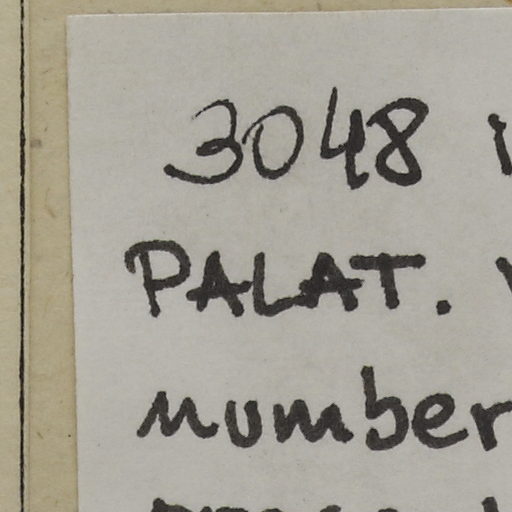 3048
PALAT.
number